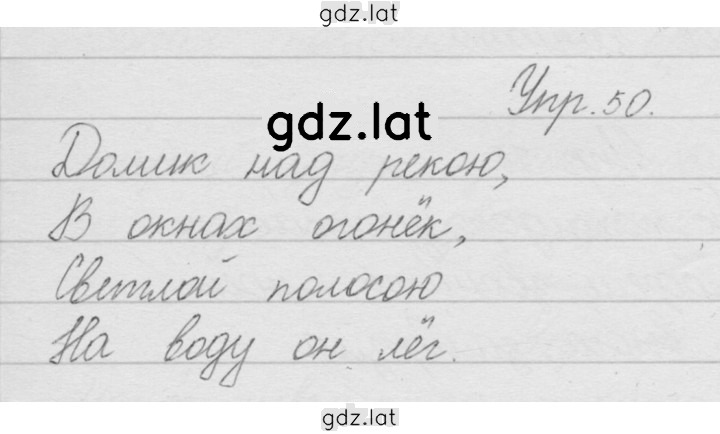 gdz.lat
Упр. 50.
gdz.lat
Домик над рекою,
В окнах огонёк,
Светлой полосою
На воду он лёг.
gdz.lat